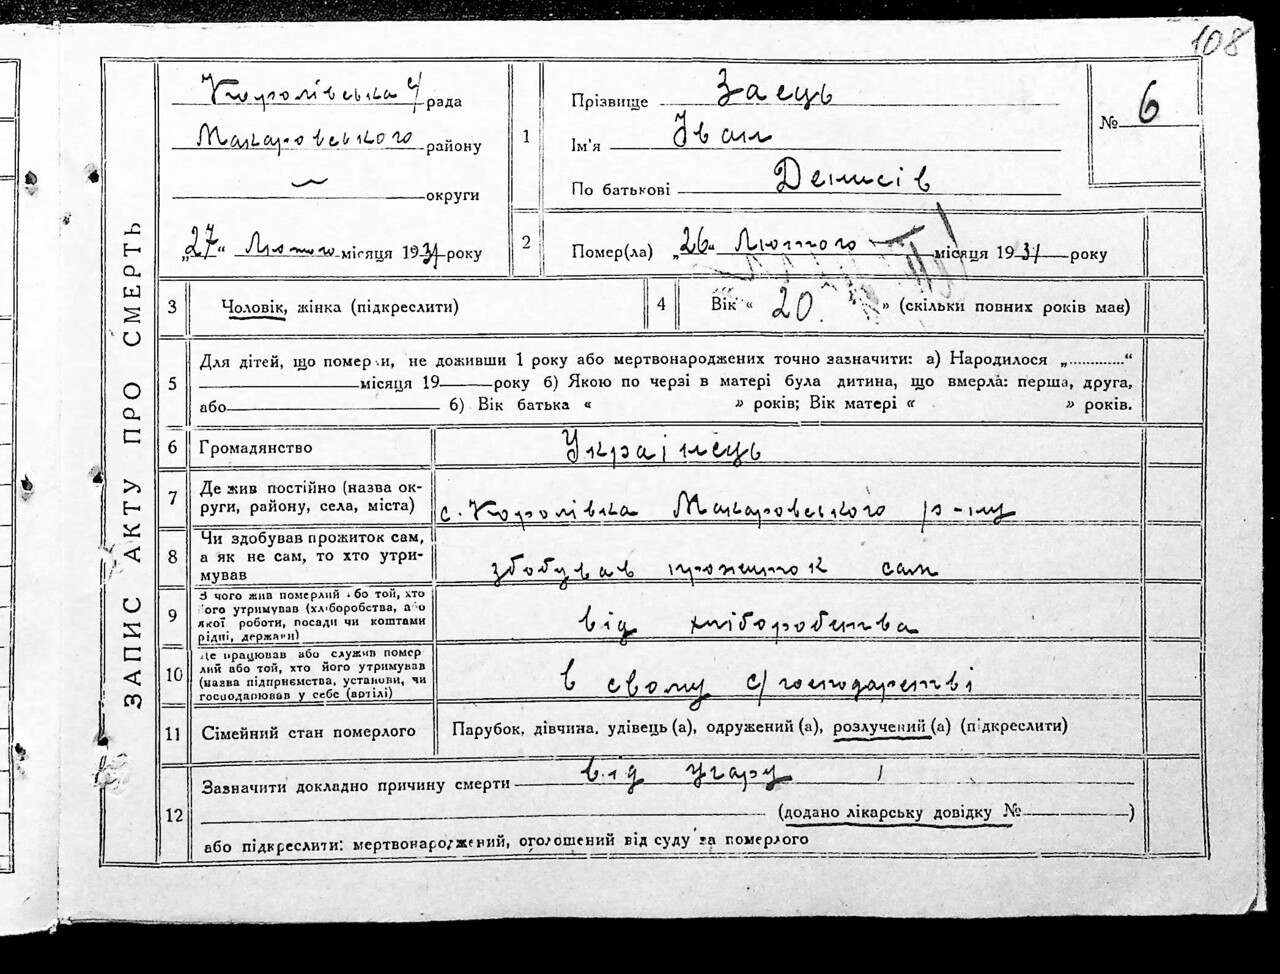 108
ЗАПИС АКТУ ПРО СМЕРТЬ
Королівська с/рада
Макаровського району
округи
„27“ Лютого місяця 1931 року
1
Прізвище Заєць
Ім'я Іван
По батькові Денисів
№ 6
2
Помер(ла) „26“ Лютого місяця 1931 року
3 Чоловік, жінка (підкреслити)
4 Вік « 20 » (скільки повних років має)
5
Для дітей, що померли, не доживши 1 року або мертвонароджених точно зазначити: а) Народилося „............“
місяця 19 року б) Якою по черзі в матері була дитина, що вмерла: перша, друга,
або 6) Вік батька « » років; Вік матері « » років.
6 Громадянство Українець
7 Де жив постійно (назва ок-
руги, району, села, міста) с. Королівка Макаровського р-ну
8 Чи здобував прожиток сам,
а як не сам, то хто утри-
мував здобував прожиток сам
9 З чого жив померлий або той, хто
його утримував (хліборобства, або
якої роботи, посади чи коштами
рідні, держави) від хліборобства
10 Де працював або служив помер
лий або той, хто його утримував
(назва підприємства, установи, чи
господарював у себе (артілі) в свому с/господарстві
11 Сімейний стан померлого Парубок, дівчина, удівець (а), одружений (а), розлучений (а) (підкреслити)
12
Зазначити докладно причину смерти від угару
(додано лікарську довідку № )
або підкреслити: мертвонароджений, оголошений від суду за померлого